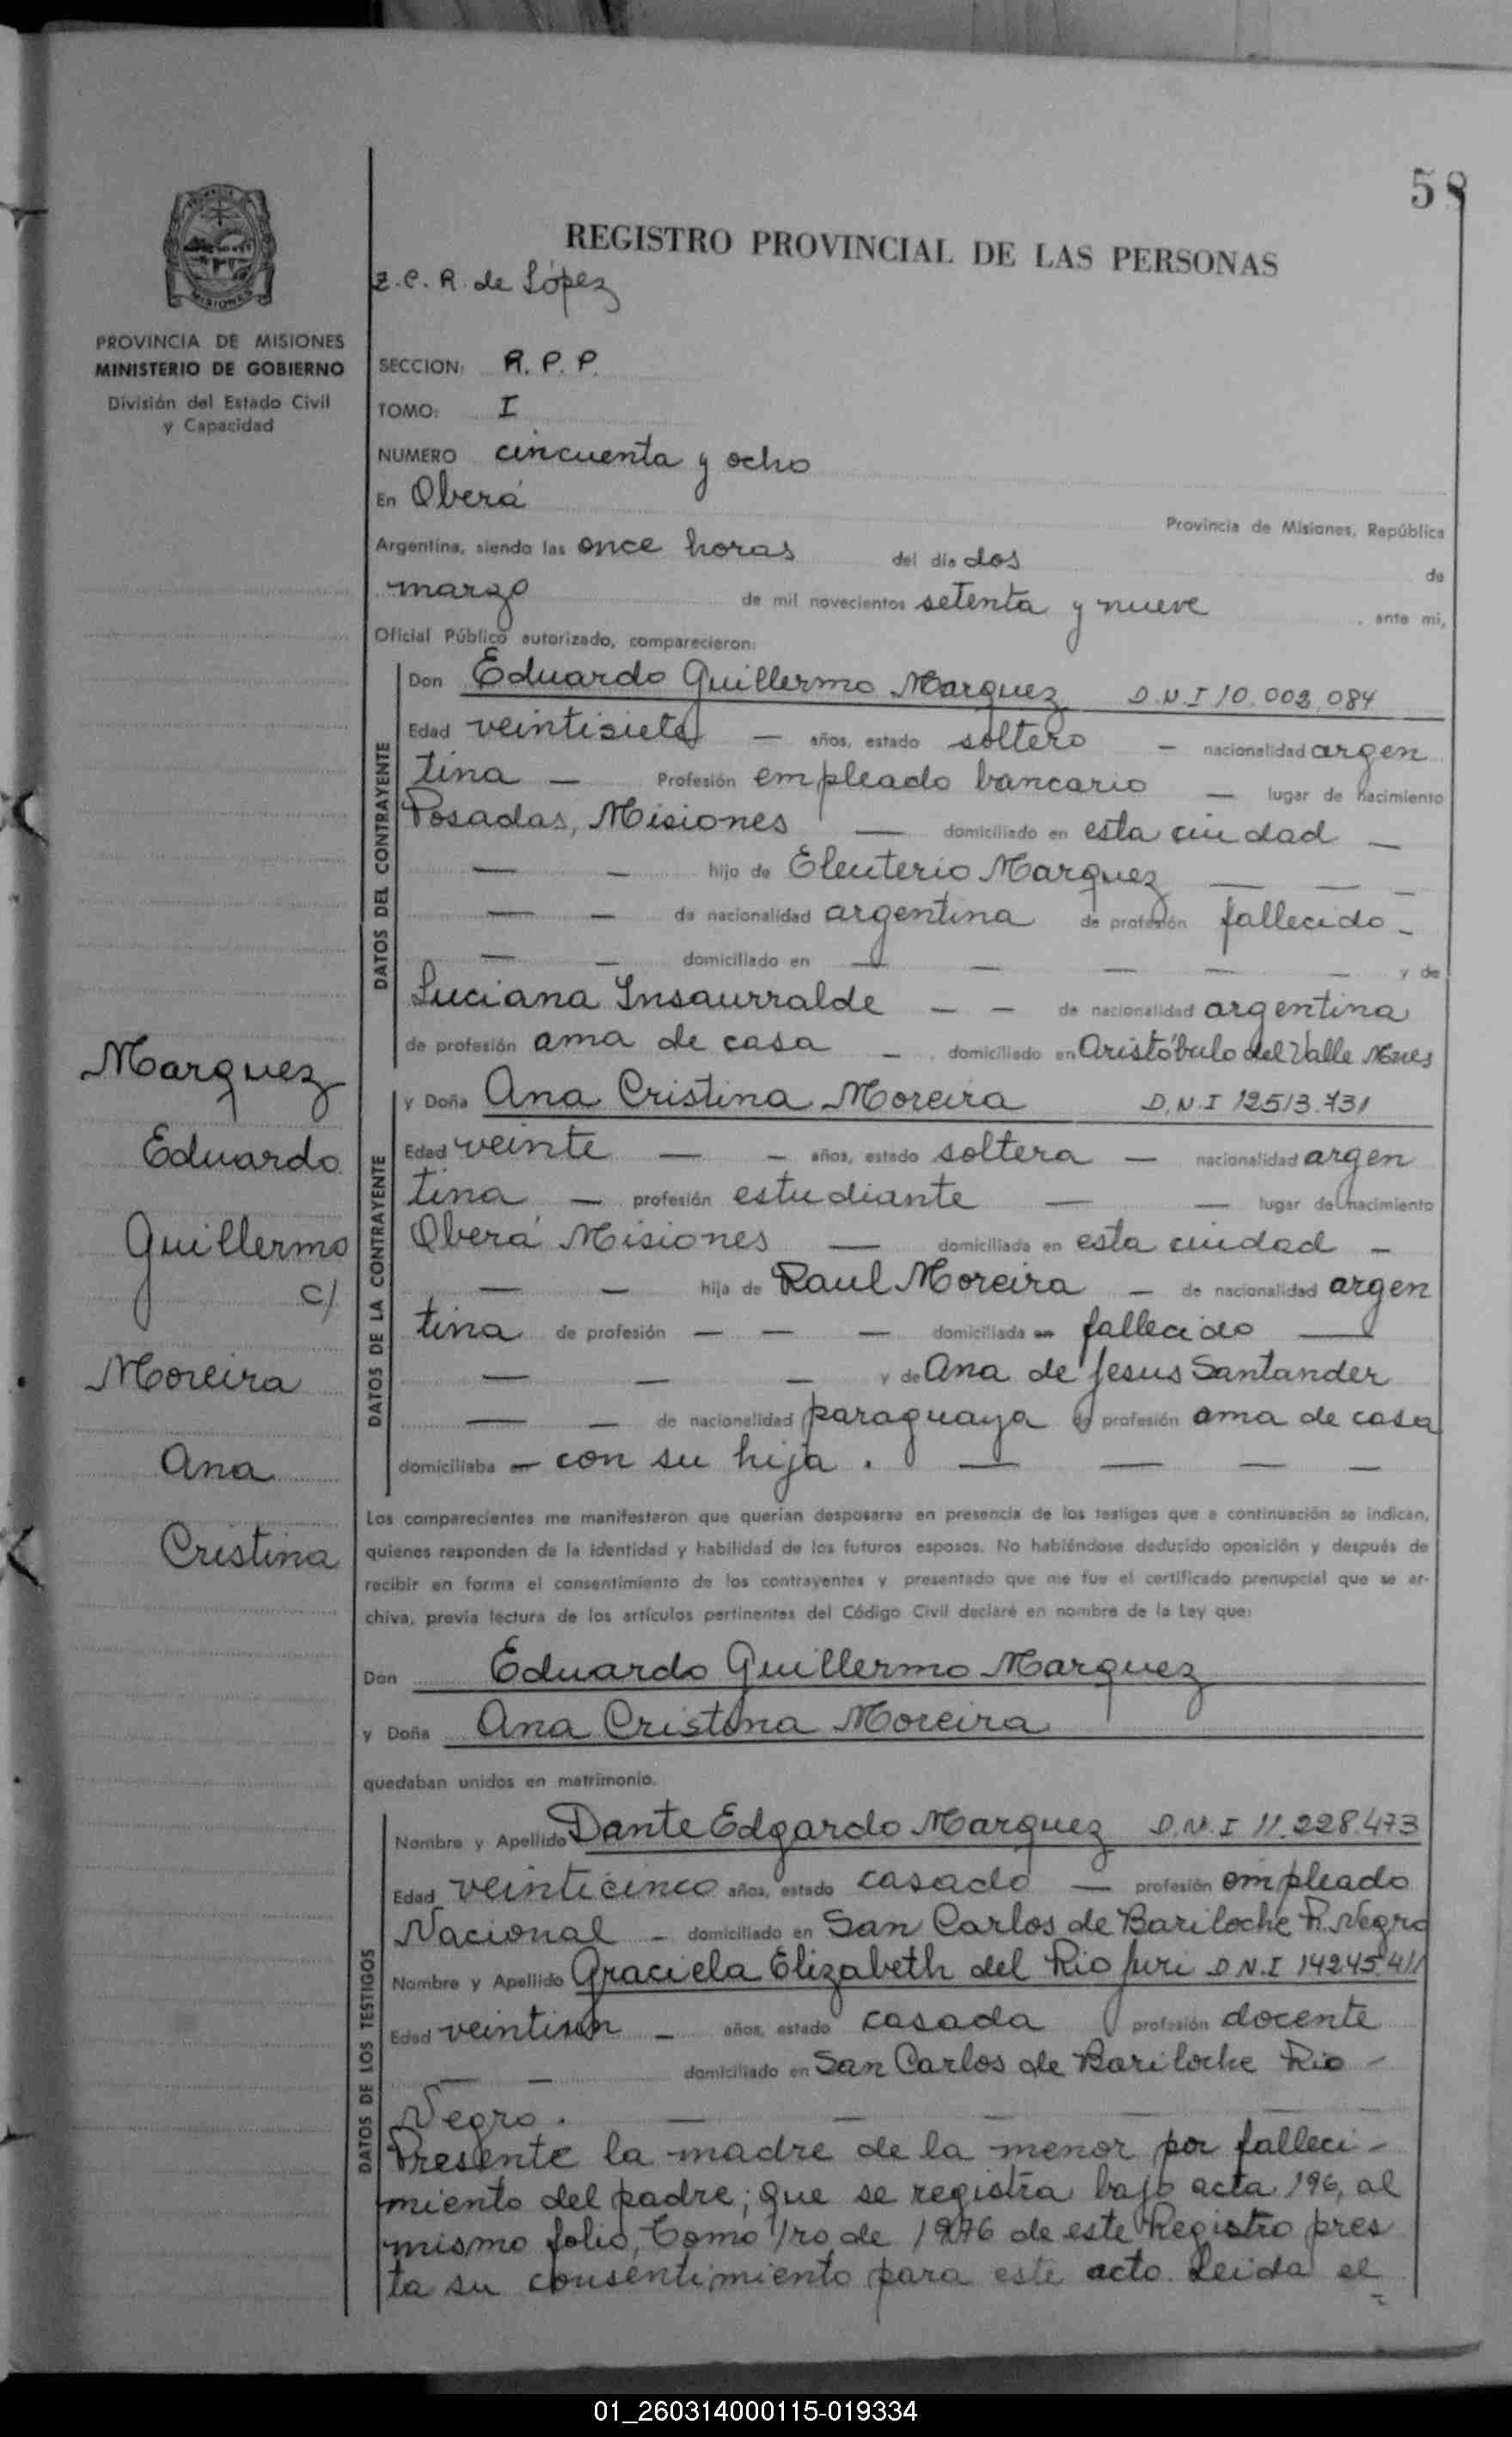 58
REGISTRO PROVINCIAL DE LAS PERSONAS
Z. C. R. de López
MISIONES
PROVINCIA DE MISIONES
MINISTERIO DE GOBIERNO
División del Estado Civil
y Capacidad
SECCION: R. P. P.
TOMO: I
NUMERO cincuenta y ocho
En Oberá
Provincia de Misiones, República
Argentina, siendo las once horas del día dos de
marzo de mil novecientos setenta y nueve, ante mi,
Oficial Público autorizado, comparecieron:
DATOS DEL CONTRAYENTE
Don Eduardo Guillermo Marquez D.N.I 10.003.084
Edad veintisiete — años, estado soltero — nacionalidad argen
tina — Profesión empleado bancario — lugar de nacimiento
Posadas, Misiones — domiciliado en esta ciudad —
— — hijo de Eleuterio Marquez — — —
— — de nacionalidad argentina de profesión fallecido —
— — domiciliado en — — — — — y de
Luciana Insaurralde — — de nacionalidad argentina
de profesión ama de casa — domiciliado en Aristóbulo del Valle Mnes
DATOS DE LA CONTRAYENTE
y Doña Ana Cristina Moreira D.N.I 12513.731
Edad veinte — — años, estado soltera — nacionalidad argen
tina — profesión estudiante — — lugar de nacimiento
Oberá Misiones — domiciliada en esta ciudad —
— — hija de Raul Moreira — de nacionalidad argen
tina de profesión — — — domiciliada en fallecido —
— — — y de Ana de Jesus Santander
— — de nacionalidad paraguaya de profesión ama de casa
domiciliaba en — con su hija. — — — —
Marquez
Eduardo
Guillermo
c/
Moreira
Ana
Cristina
Los comparecientes me manifestaron que querían desposarse en presencia de los testigos que a continuación se indican,
quienes responden de la identidad y habilidad de los futuros esposos. No habiéndose deducido oposición y después de
recibir en forma el consentimiento de los contrayentes y presentado que me fue el certificado prenupcial que se ar-
chiva, previa lectura de los artículos pertinentes del Código Civil declaré en nombre de la Ley que:
Don Eduardo Guillermo Marquez
y Doña Ana Cristina Moreira
quedaban unidos en matrimonio.
DATOS DE LOS TESTIGOS
Nombre y Apellido Dante Edgardo Marquez D.N.I 11.228.473
Edad veinticinco años, estado casado — profesión empleado
Nacional — domiciliado en San Carlos de Bariloche R. Negro
Nombre y Apellido Graciela Elizabeth del Rio Juri D.N.I 14245.411
Edad veintiun — años, estado casada profesión docente
— — domiciliado en San Carlos de Bariloche Rio —
Negro. — — — — —
Presente la madre de la menor por falleci-
miento del padre; que se registra bajo acta 196, al
mismo folio, Tomo 1ro, de 1976 de este Registro pres
ta su consentimiento para este acto. Leída el
01_260314000115-019334